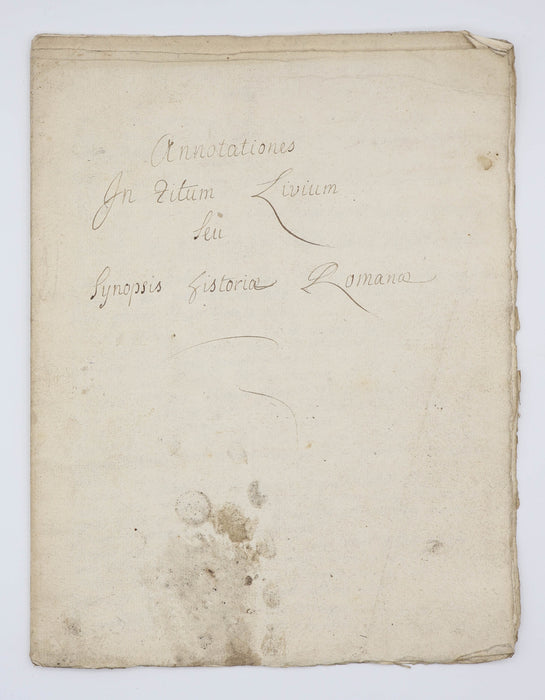 Annotationes
In Titum Livium
Seu
Synopsis Historiæ Romanæ